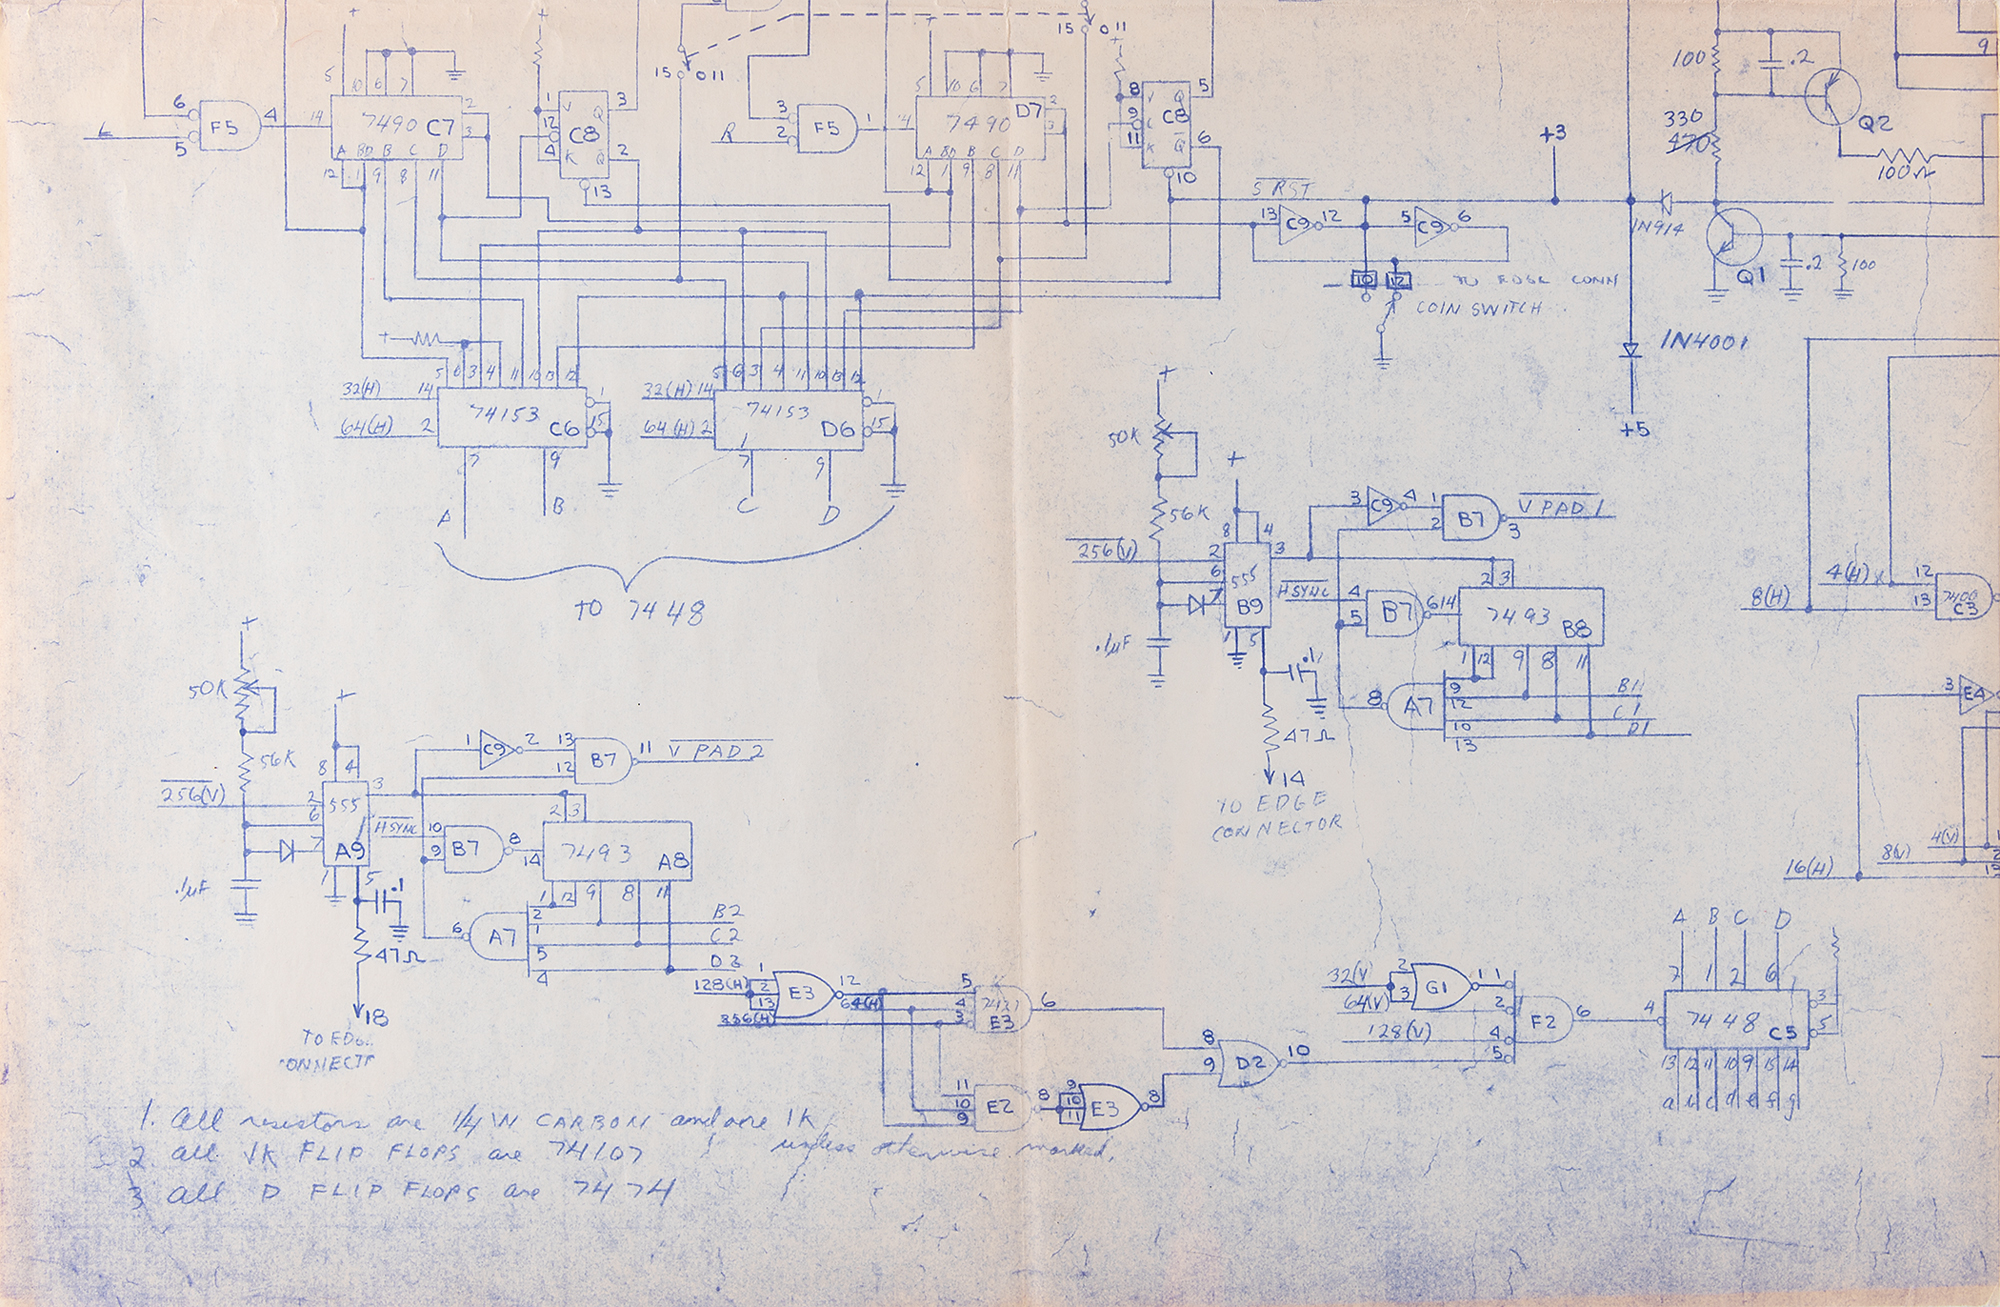 15 0 11
15 0 11
+
+
+
+
5 10 6 7
5 10 6 7
6
5
F5
4
14
7490 C7
2
3
A BD B C D
12 1 9 8 11
L
1
12
4
J
K
C8
Q
Q
3
2
13
3
2
R
F5
1
14
7490 D7
2
3
A BD B C D
12 1 9 8 11
8
9
11
C8
Q
Q
5
6
10
S RST
13 C9 12
5 C9 6
10 12 TO EDGE CONN
COIN SWITCH
+3
100
.2
330
470
Q2
100Ω
1N914
Q1
.2
100
9
1N4001
+5
+
5 6 3 4 11 10 13 12
32(H) 14
64(H) 2
74153
C6
1
15
7 9
A B
5 6 3 4 11 10 13 12
32(H) 14
64(H) 2
74153
D6
1
15
7 9
C D
TO 7448
+
50K
56K
+
8 4
256(V)
2
6
7
555
B9
3
1 5
.1µF
.1
47Ω
14
TO EDGE
CONNECTOR
3 C9 4
1
2
B7
3
V PAD 1
HSYNC
4
5
B7
6 14
2 3
7493
B8
1 12 9 8 11
8
A7
9
12
10
13
B1
C1
D1
4(H)
8(H)
12
13
7400
C3
3
E4
4(V)
8(V)
16(H)
+
50K
56K
+
8 4
256(V)
2
6
7
555
A9
3
1 5
.1µF
.1
47Ω
18
TO EDG
CONNECT
1 C9 2
13
12
B7
11
V PAD 2
HSYNC
10
9
B7
8
14
2 3
7493
A8
1 12 9 8 11
6
A7
2
1
5
4
B2
C2
D2
128(H)
1
2
13
E3
12
64(H)
256(H)
5
4
3
E3
6
11
10
9
E2
8
9
10
11
E3
8
8
9
D2
10
32(V)
64(V)
128(V)
2
3
G1
1
1
2
4
5
F2
6
A B C D
7 1 2 6
4
7448
C5
3
5
13 12 11 10 9 15 14
a b c d e f g
1. All resistors are 1/4 W CARBON and are 1K
unless otherwise marked.
2. All JK FLIP FLOPS are 74107
3 All D FLIP FLOPS are 7474